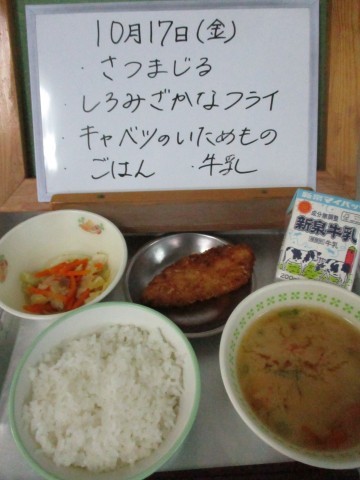 10月17日(金)
・さつまじる
・しろみざかなフライ
・キャベツのいためもの
・ごはん ・牛乳
成分無調整
新泉牛乳